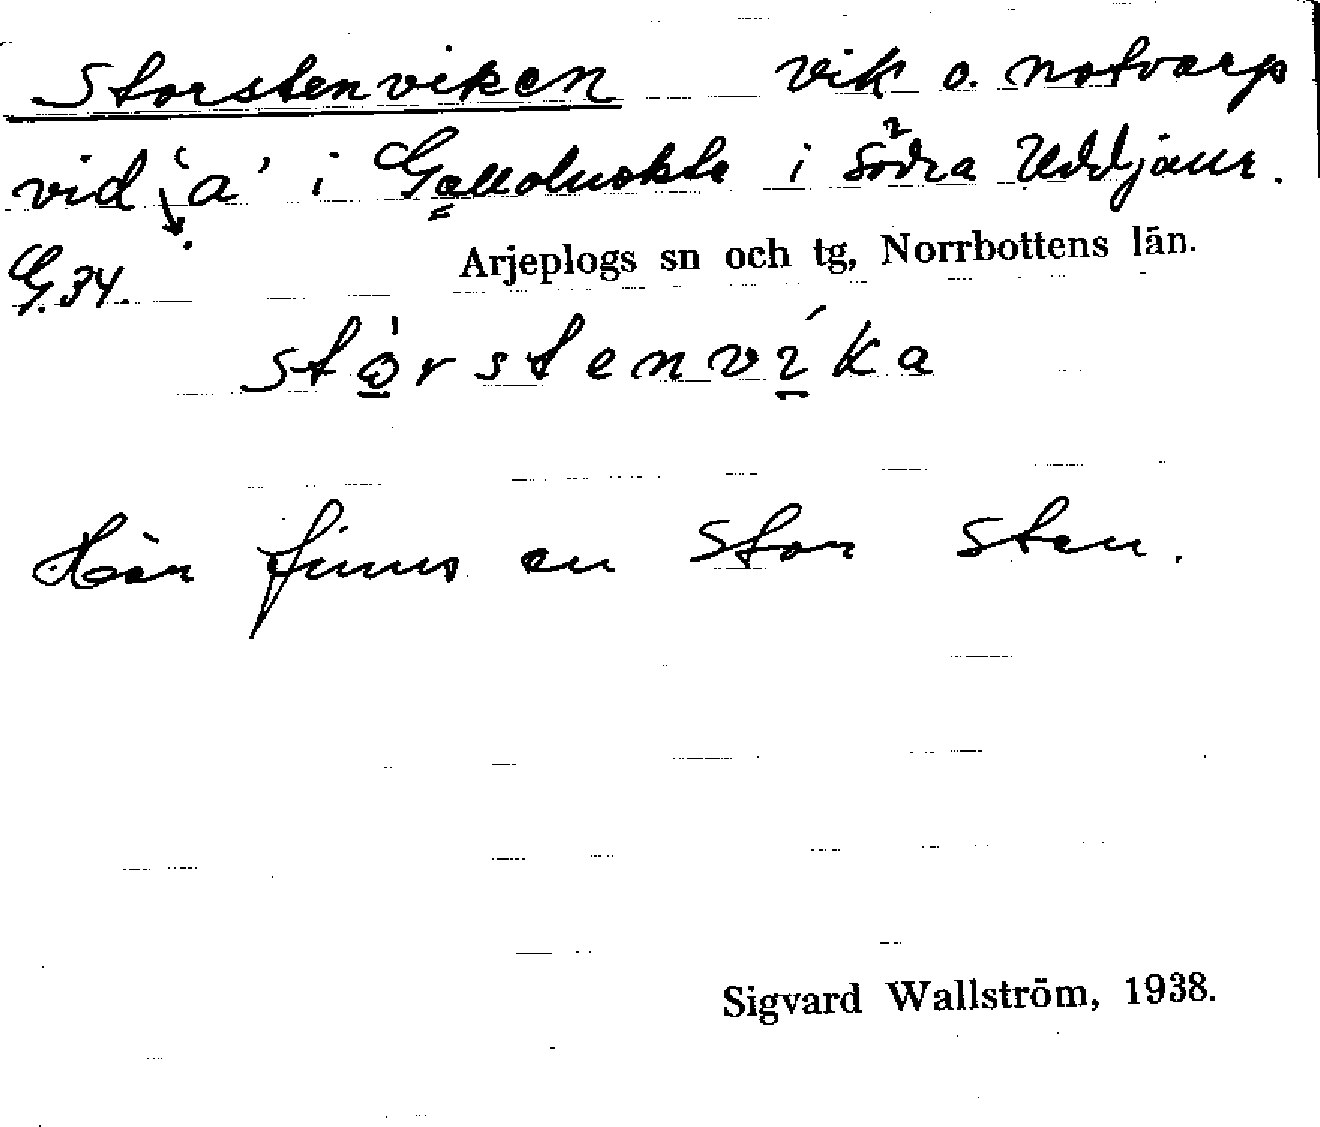 Storstenviken vik o. notvarp
vid 'a' i Galloluokta i södra Uddjaur.
G. 34. Arjeplogs sn och tg, Norrbottens län.
stòrstenvíka
Här finns en stor sten.
Sigvard Wallström, 1938.